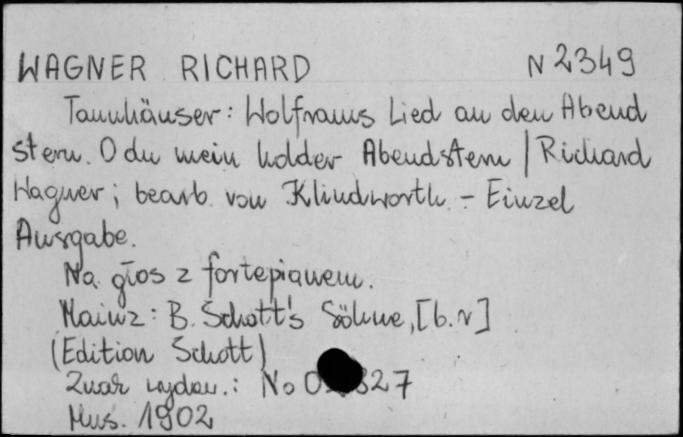 WAGNER RICHARD N 2349
Tannhäuser: Wolframs Lied an den Abend
stern. O du mein holder Abendstern / Richard
Wagner; bearb. von Klindworth. - Einzel
Ausgabe.
Na głos z fortepianem.
Mainz: B. Schott's Söhne, [b.r]
(Edition Schott)
Znak wydaw.: No 0 827
Mus. 1902